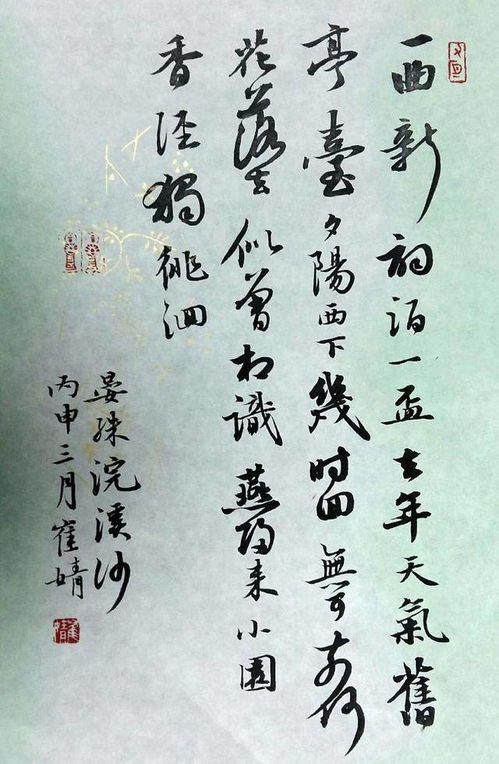 一曲新词酒一盃去年天氣舊
亭臺夕陽西下幾时回無可奈何
花落去似曾相識燕归来小園
香径獨徘徊
晏殊浣溪沙
丙申三月崔婧